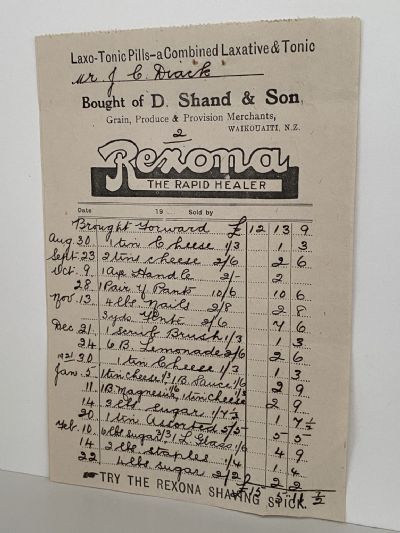 Laxo-Tonic Pills—a Combined Laxative & Tonic
Mr. J C Diack
Bought of D. Shand & Son,
Grain, Produce & Provision Merchants,
WAIKOUAITI, N.Z.
2
Rexona
THE RAPID HEALER
Date 19 Sold by
Brought Forward £ 12 13 9
Aug. 30 1 tin Cheese 1/3 1 3
Sept. 23 2 tins cheese 2/6 2 6
Oct. 9 1 Axe Handle 2/- 2
28 1 Pair of Pants 10/6 10 6
Nov. 13 4 lbs Nails 2/8 2 8
3 yds 2/6 7 6
Dec 21. 1 Scrub Brush 1/3 1 3
24 6 B. Lemonade 2/6 2 6
30 1 tin Cheese 1/3 1 3
Jan. 5 1 tin Cheese 1/3 1 B. Sauce 1/6 2 9
11 1 B. Magnesia 1/6 1 tin Cheese 1/3 2 9
14 3 lbs Sugar 1/7½ 1 7½
20 1 tin Assorted 5/5 5 5
Feb. 10 6 lbs Sugar 3/3 1 L. Glass 1/6 4 9
14 2 lbs Staples 1/4 1 4
22 4 lbs Sugar 2/2 2 2
£15 5 11½
TRY THE REXONA SHAVING STICK.